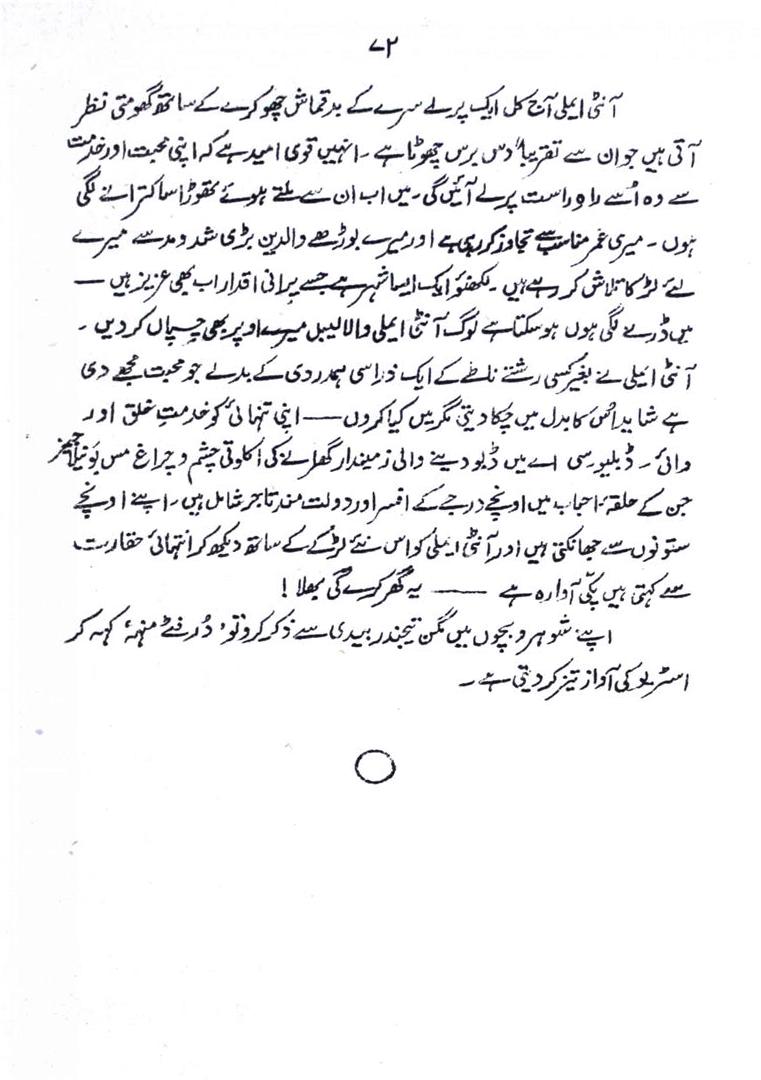 ۷۲
آنٹی ایملی آج کل ایک پرلے سرے کے بدقماش چھوکرے کے ساتھ گھومتی نظر
آتی ہیں جو ان سے تقریباً دس برس چھوٹا ہے ۔ انہیں قوی امید ہے کہ اپنی محبت اور خدمت
سے وہ اُسے راہِ راست پر لے آئیں گی ۔ میں اب ان سے ملتے ہوئے تھوڑا سا کترانے لگی
ہوں ۔ میری عمر مناسب سے تجاوز کر رہی ہے اور میرے بوڑھے والدین بڑی شد و مد سے میرے
لئے لڑکا تلاش کر رہے ہیں ۔ لکھنؤ ایک ایسا شہر ہے جسے پرانی اقدار اب بھی عزیز ہیں —
میں ڈرنے لگی ہوں ہو سکتا ہے لوگ آنٹی ایملی والا لیبل میرے اوپر بھی چسپاں کر دیں ۔
آنٹی ایملی نے بغیر کسی رشتے ناطے کے ایک ذرا سی ہمدردی کے بدلے جو محبت مجھے دی
ہے شاید اس کا بدل میں چکا دیتی مگر میں کیا کروں — اپنی تنہائی کو خدمتِ خلق اور
وائی ۔ ڈبلیو سی اے میں ڈبو دینے والی زمیندار گھرانے کی اکلوتی چشم و چراغ مس بونیا
جن کے حلقۂ احباب میں اونچے درجے کے افسر اور دولت مند تاجر شامل ہیں ۔ اپنے اونچے
ستونوں سے جھانکتی ہیں اور آنٹی ایملی کو اس نئے لڑکے کے ساتھ دیکھ کر انتہائی حقارت
سے کہتی ہیں پکّی آوارہ ہے — یہ گھر کرے گی بھلا !
اپنے شوہر و بچوں میں مگن تیجندر بیدی سے ذکر کرو تو ' دُر فٹے منہہ' کہہ کر
اسٹریو کی آواز تیز کر دیتی ہے ۔